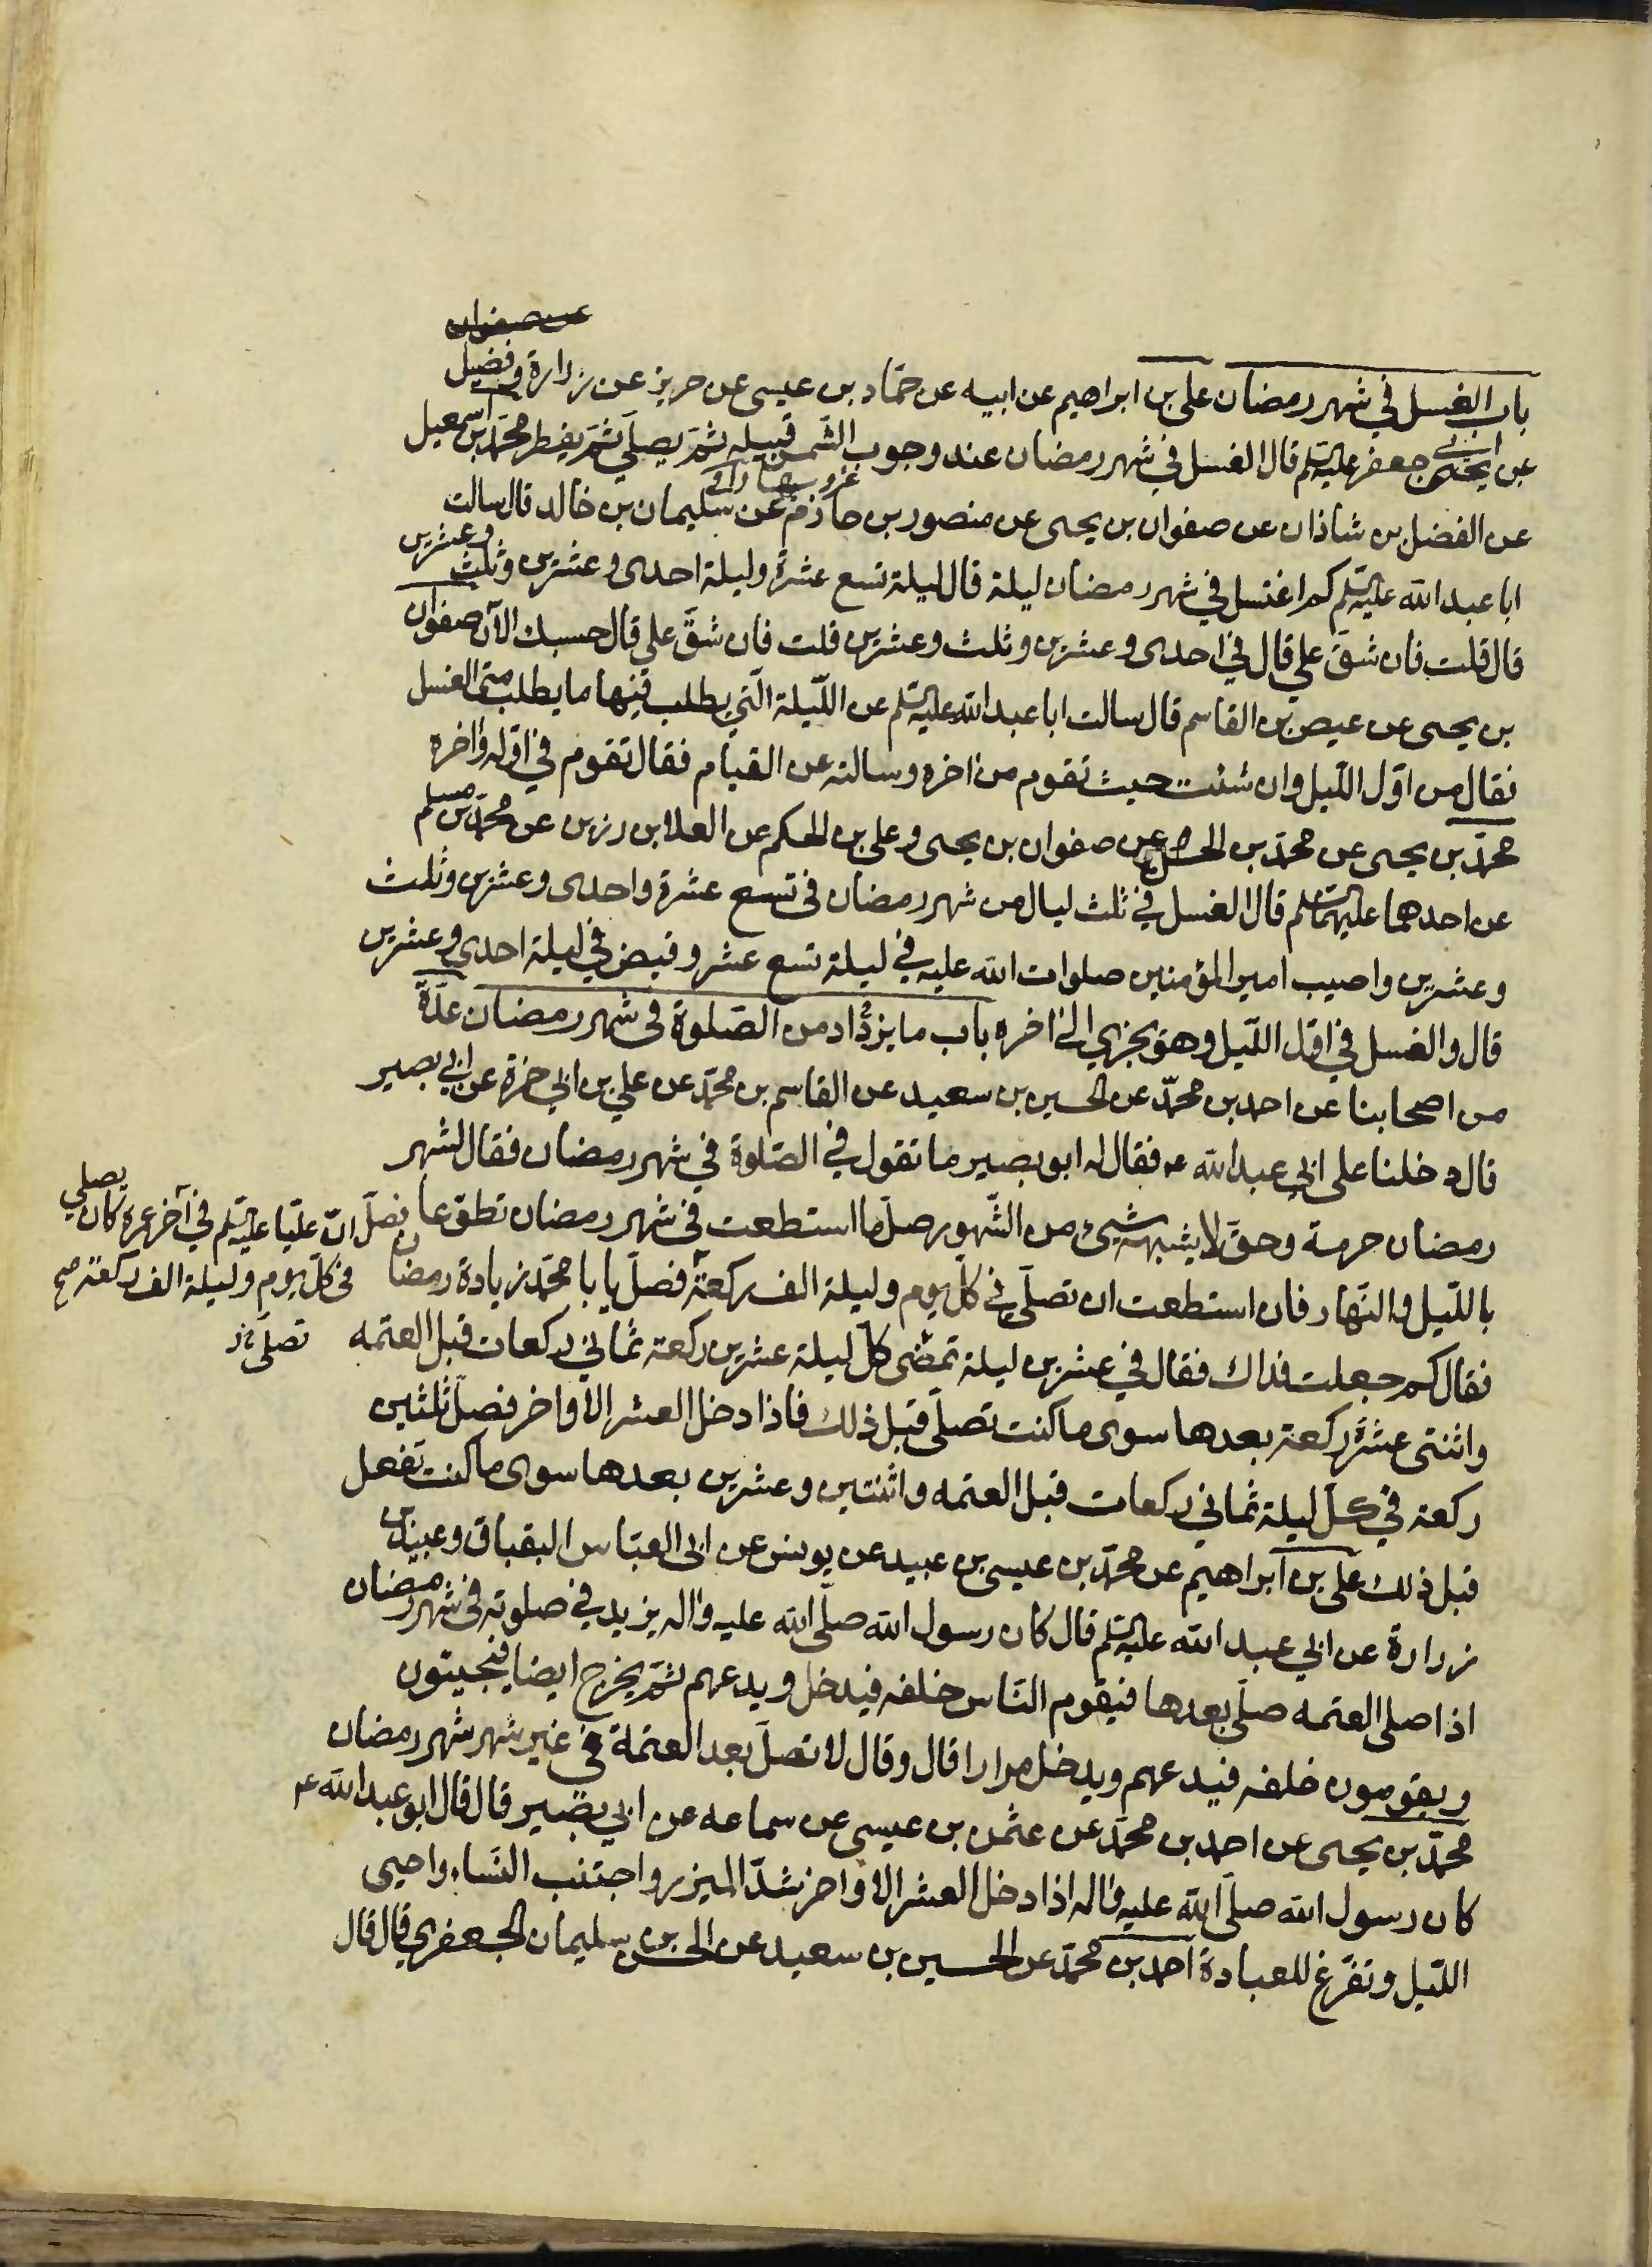 عن صفوان
باب الغسل في شهر رمضان علي بن ابراهيم عن ابيه عن حماد بن عيسى عن حريز عن زرارة وفضيل
عن ابي جعفر عليه السلم قال الغسل في شهر رمضان عند وجوب الشمس قبيله ثمّ يصلّي ثمّ يفطر محمّد بن اسمعيل
عن الفضل بن شاذان عن صفوان بن يحيى عن منصور بن حازم عن سليمان بن خالد قال سالت
ابا عبد الله عليه السلم كم اغتسل في شهر رمضان ليلة قال ليلة تسع عشرة وليلة احدى وعشرين وثلث وعشرين
قال قلت فان شقّ علي قال في احدى وعشرين وثلث وعشرين قلت فان شقّ علي قال حسبك الآن صفوان
بن يحيى عن عيص بن القاسم قال سالت ابا عبد الله عليه السلم عن اللّيلة الّتي يطلب فيها ما يطلب متى الغسل
فقال من اوّل اللّيل وان شئت حيث تقوم من اخره وسالته عن القيام فقال تقوم في اوّله واخره
محمّد بن يحيى عن محمّد بن الحسين عن صفوان بن يحيى وعلي بن الحكم عن العلا بن رزين عن محمّد بن مسلم
عن احدهما عليهما السلم قال الغسل في ثلث ليال من شهر رمضان في تسع عشرة واحدى وعشرين وثلث
وعشرين واصيب امير المؤمنين صلوات الله عليه في ليلة تسع عشر وقبض في ليلة احدى وعشرين
قال والغسل في اوّل اللّيل وهو يجزي الى اخره باب ما يزاد من الصّلوة في شهر رمضان عدّة
من اصحابنا عن احمد بن محمّد عن الحسين بن سعيد عن القاسم بن محمّد عن علي بن ابي حمزة عن ابي بصير
قال دخلنا على ابي عبد الله ع فقال له ابو بصير ما تقول في الصّلوة في شهر رمضان فقال لشهر
رمضان حرمة وحقّ لا يشبهه شيئ من الشّهور صلّ ما استطعت في شهر رمضان تطوّعا
باللّيل والنّهار فان استطعت ان تصلّي في كلّ يوم وليلة الف ركعة فصلّ يابا محمّد زيادة رمضان
فصلّ انّ عليّا عليه السلم في آخر عمره كان يصلي
في كلّ يوم وليلة الف ركعة صح
فقال كم جعلت فداك فقال في عشرين ليلة تمضى كلّ ليلة عشرين ركعة ثماني ركعات قبل العتمه
تصلّي
واثنتى عشرة ركعة بعدها سوى ما كنت تصلّى قبل ذلك فاذا دخل العشر الاواخر فصلّ ثلثين
ركعة في كلّ ليلة ثماني ركعات قبل العتمه واثنتين وعشرين بعدها سوى ما كنت تفعل
قبل ذلك علي بن ابراهيم عن محمّد بن عيسى بن عبيد عن يونس عن ابي العبّاس البقباق وعبيد بن
زرارة عن ابي عبد الله عليه السلم قال كان رسول الله صلّى الله عليه واله يزيد في صلوته في شهر رمضان
اذا صلى العتمه صلّى بعدها فيقوم النّاس خلفه فيدخل ويدعهم ثمّ يخرج ايضا فيجيئون
ويقومون خلفه فيدعهم ويدخل مرارا قال وقال لا تصلّ بعد العتمة في غير شهر شهر رمضان
محمّد بن يحيى عن احمد بن محمّد عن عثمن بن عيسى عن سماعه عن ابي بصير قال قال ابو عبد الله ع
كان رسول الله صلّى الله عليه واله اذا دخل العشر الاواخر شدّ الميزر واجتنب النّساء واحيى
اللّيل وتفرّغ للعبادة احمد بن محمّد عن الحسين بن سعيد عن الحسن بن سليمان الجعفري قال قال